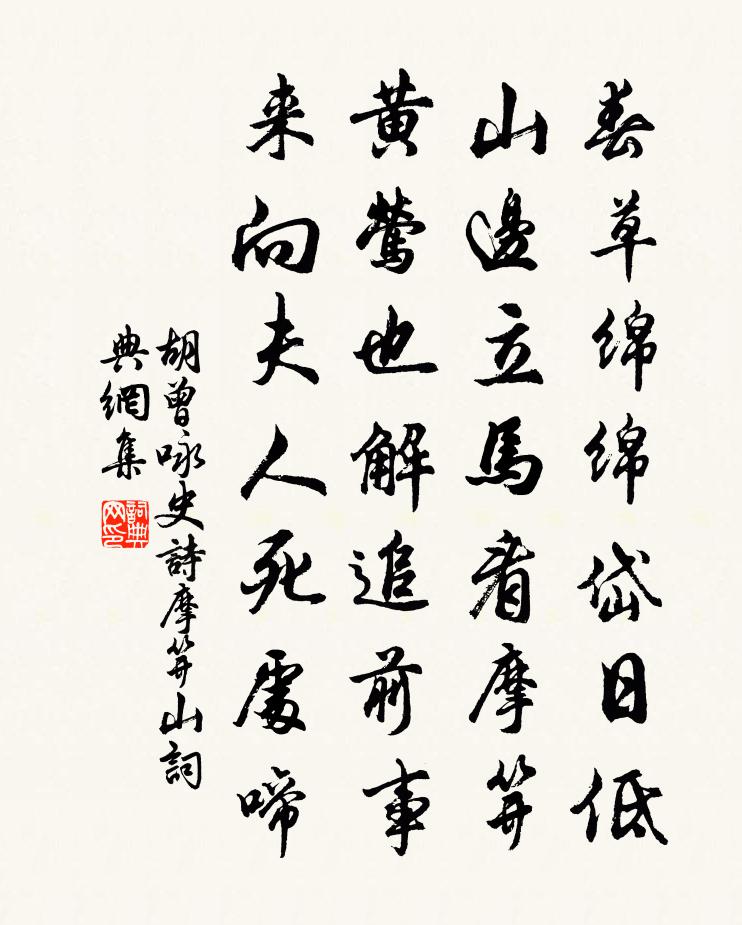 春草綿綿岱日低
山邊立馬看摩笄
黃鶯也解追前事
来向夫人死處啼
胡曾咏史詩摩笄山詞
典網集
詞典网印